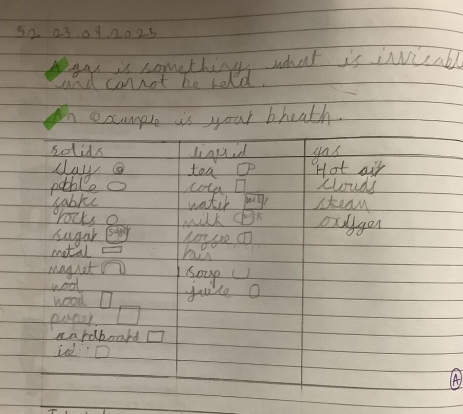 52 23.09.2025
A gas is something what is invisable
and cannot be held.
An example is your bheath.
solids liquid gas
clay tea Hot air
pebble cola clouds
fabric water stean
rocks milk oxygen
sugar coffee
metal
magnet soup
wool juice
wood
paper
cardboard
ice
A